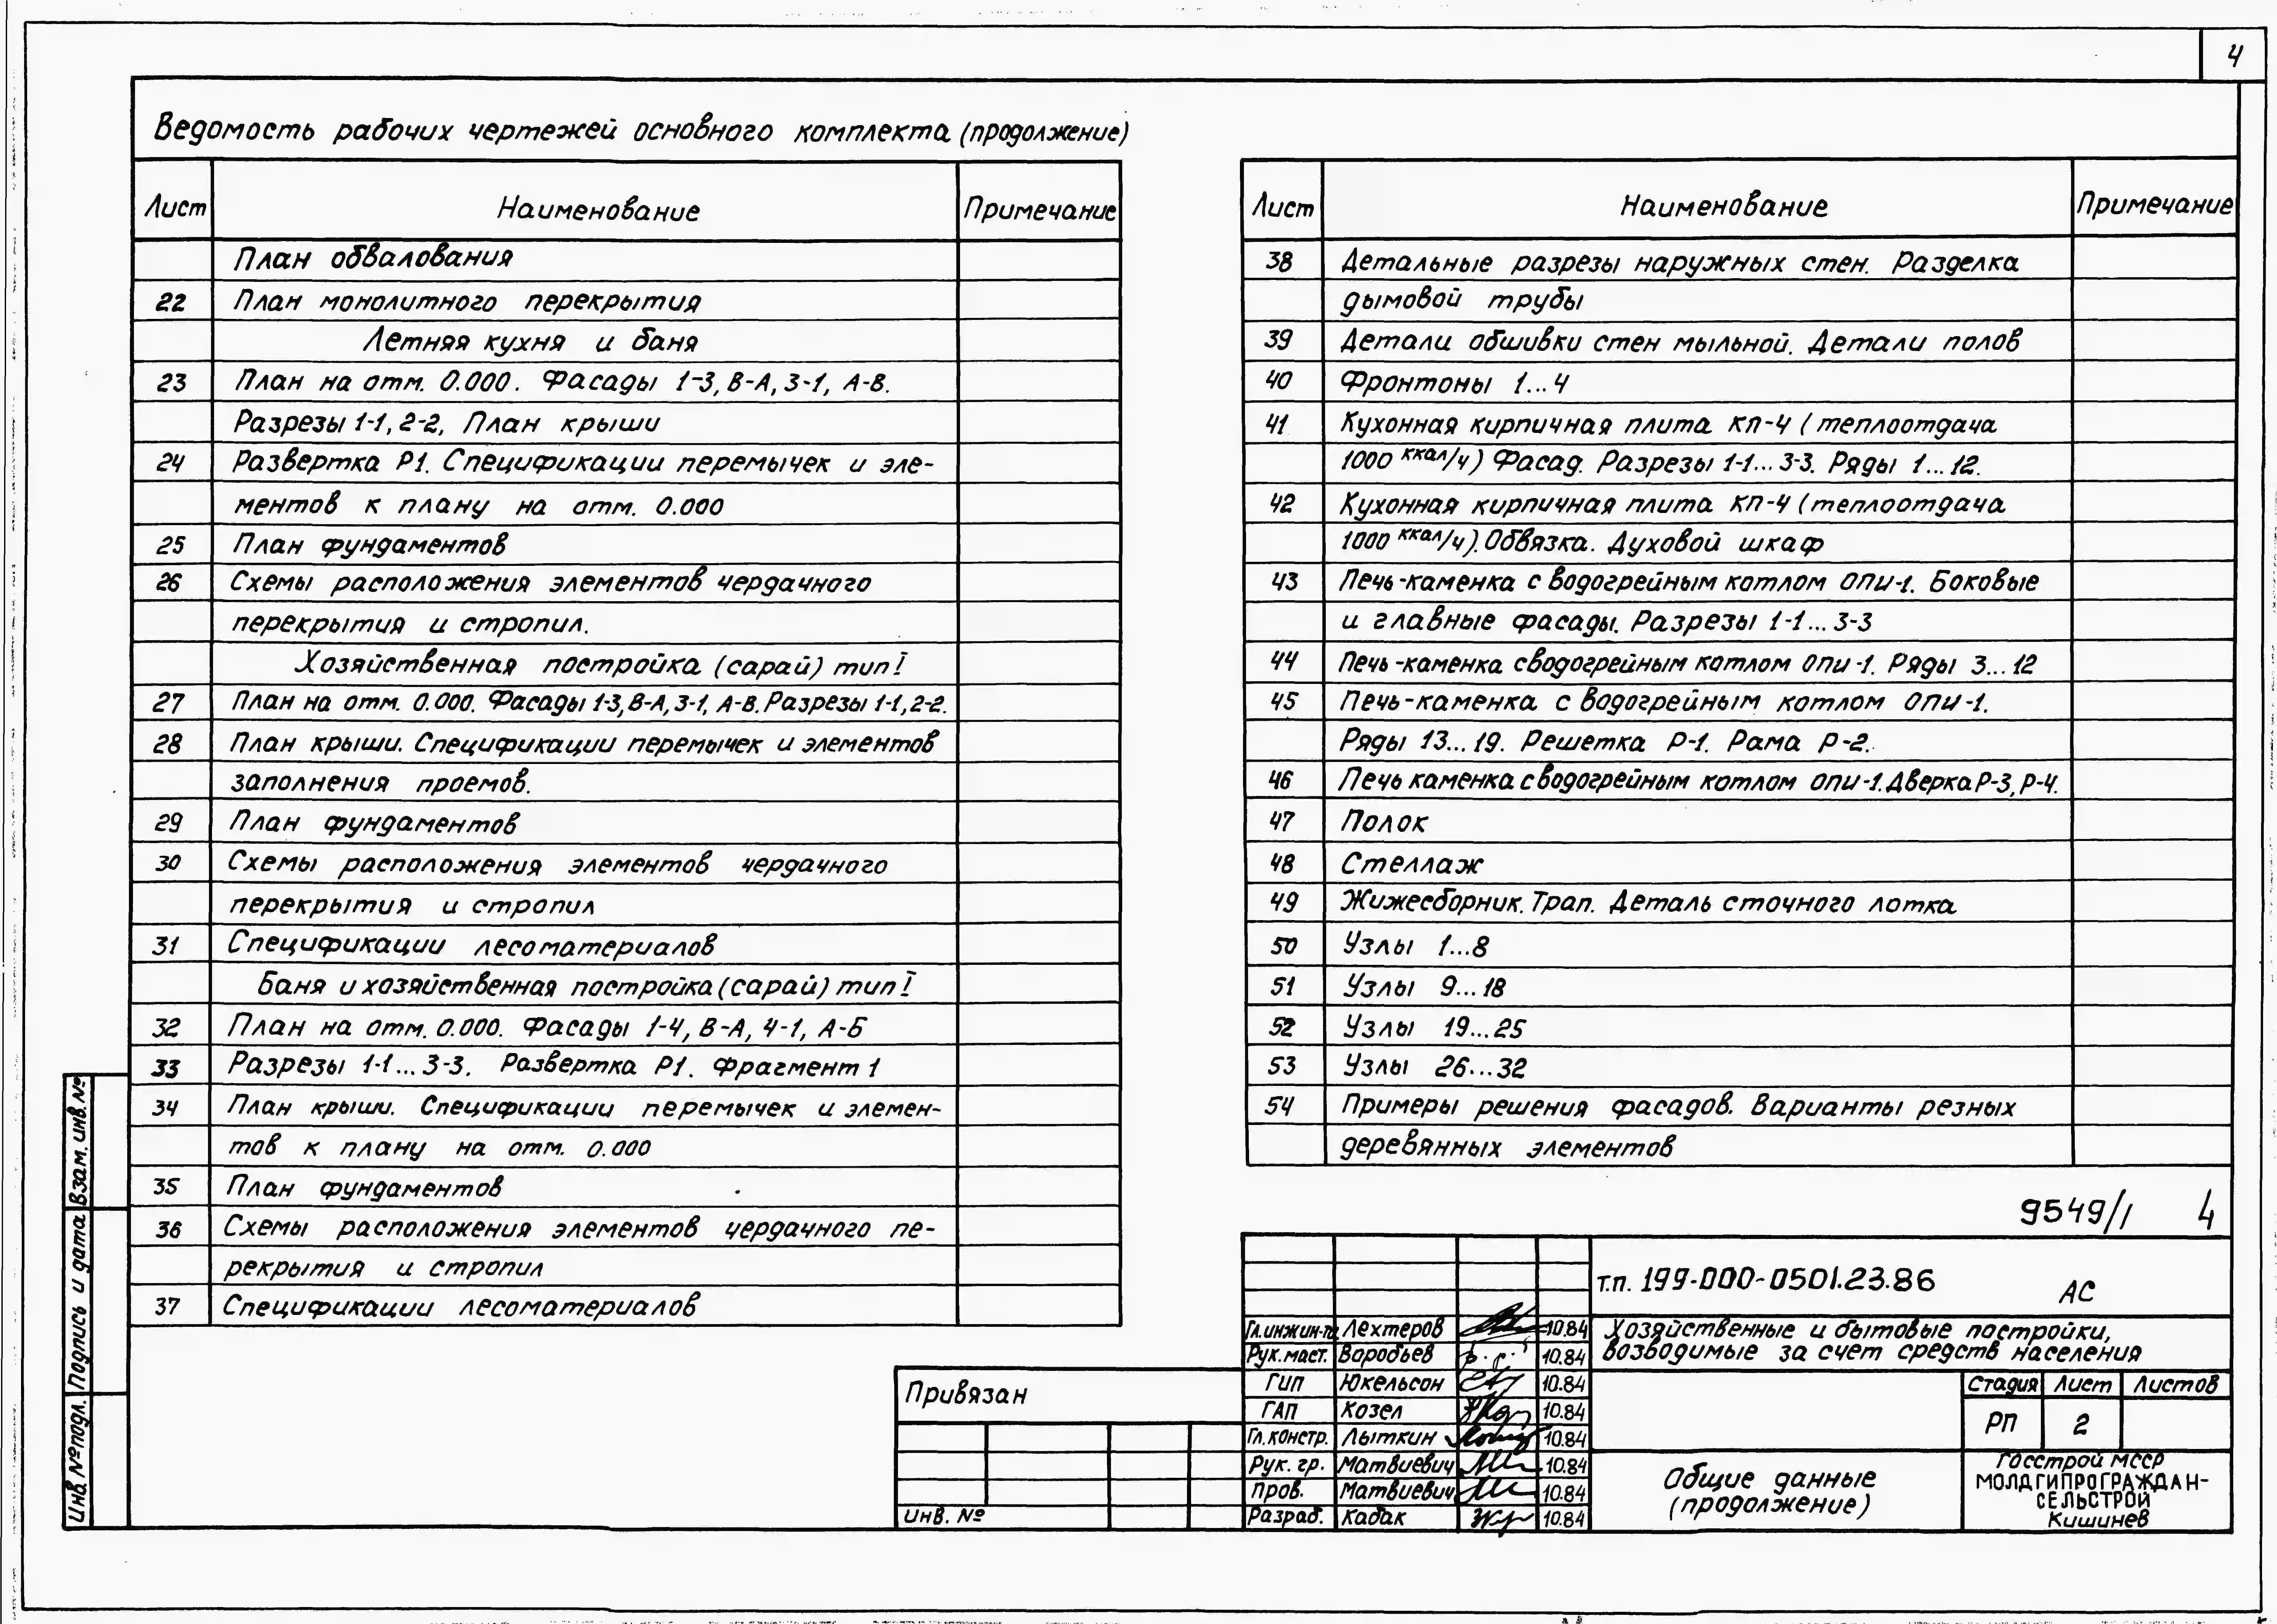 4
Ведомость рабочих чертежей основного комплекта (продолжение)
Лист Наименование Примечание
План обвалования
22 План монолитного перекрытия
Летняя кухня и баня
23 План на отм. 0.000. Фасады 1-3, В-А, 3-1, А-В.
Разрезы 1-1, 2-2. План крыши
24 Развертка Р1. Спецификации перемычек и эле-
ментов к плану на отм. 0.000
25 План фундаментов
26 Схемы расположения элементов чердачного
перекрытия и стропил.
Хозяйственная постройка (сарай) тип I
27 План на отм. 0.000. Фасады 1-3, В-А, 3-1, А-В. Разрезы 1-1, 2-2.
28 План крыши. Спецификации перемычек и элементов
заполнения проемов.
29 План фундаментов
30 Схемы расположения элементов чердачного
перекрытия и стропил
31 Спецификации лесоматериалов
Баня и хозяйственная постройка (сарай) тип I
32 План на отм. 0.000. Фасады 1-4, В-А, 4-1, А-Б
33 Разрезы 1-1... 3-3. Развертка Р1. Фрагмент 1
34 План крыши. Спецификации перемычек и элемен-
тов к плану на отм. 0.000
35 План фундаментов
36 Схемы расположения элементов чердачного пе-
рекрытия и стропил
37 Спецификации лесоматериалов
Лист Наименование Примечание
38 Детальные разрезы наружных стен. Разделка
дымовой трубы
39 Детали обшивки стен мыльной. Детали полов
40 Фронтоны 1...4
41 Кухонная кирпичная плита КП-4 (теплоотдача
1000 ккал/ч) Фасад. Разрезы 1-1... 3-3. Ряды 1...12.
42 Кухонная кирпичная плита КП-4 (теплоотдача
1000 ккал/ч). Обвязка. Духовой шкаф
43 Печь-каменка с водогрейным котлом ОПИ-1. Боковые
и главные фасады. Разрезы 1-1... 3-3
44 Печь-каменка с водогрейным котлом ОПИ-1. Ряды 3...12
45 Печь-каменка с водогрейным котлом ОПИ-1.
Ряды 13...19. Решетка Р-1. Рама Р-2.
46 Печь каменка с водогрейным котлом ОПИ-1. Дверка Р-3, Р-4.
47 Полок
48 Стеллаж
49 Жижесборник. Трап. Деталь сточного лотка
50 Узлы 1...8
51 Узлы 9...18
52 Узлы 19...25
53 Узлы 26...32
54 Примеры решения фасадов. Варианты резных
деревянных элементов
9549/1 4
т.п. 199-000-0501.23.86 АС
Гл. инжин-та Лехтеров 10.84
Рук. маст. Воробьев 10.84
ГИП Юкельсон 10.84
ГАП Козел 10.84
Гл. констр. Лыткин 10.84
Рук. гр. Матвиевич 10.84
Пров. Матвиевич 10.84
Разраб. Кабак 10.84
Хозяйственные и бытовые постройки,
возводимые за счет средств населения
Стадия Лист Листов
РП 2
Общие данные
(продолжение)
Госстрой МССР
МОЛДГИПРОГРАЖДАН-
СЕЛЬСТРОЙ
Кишинев
Привязан
Инв. №
Взам. инв. №
Подпись и дата
Инв. № подл.